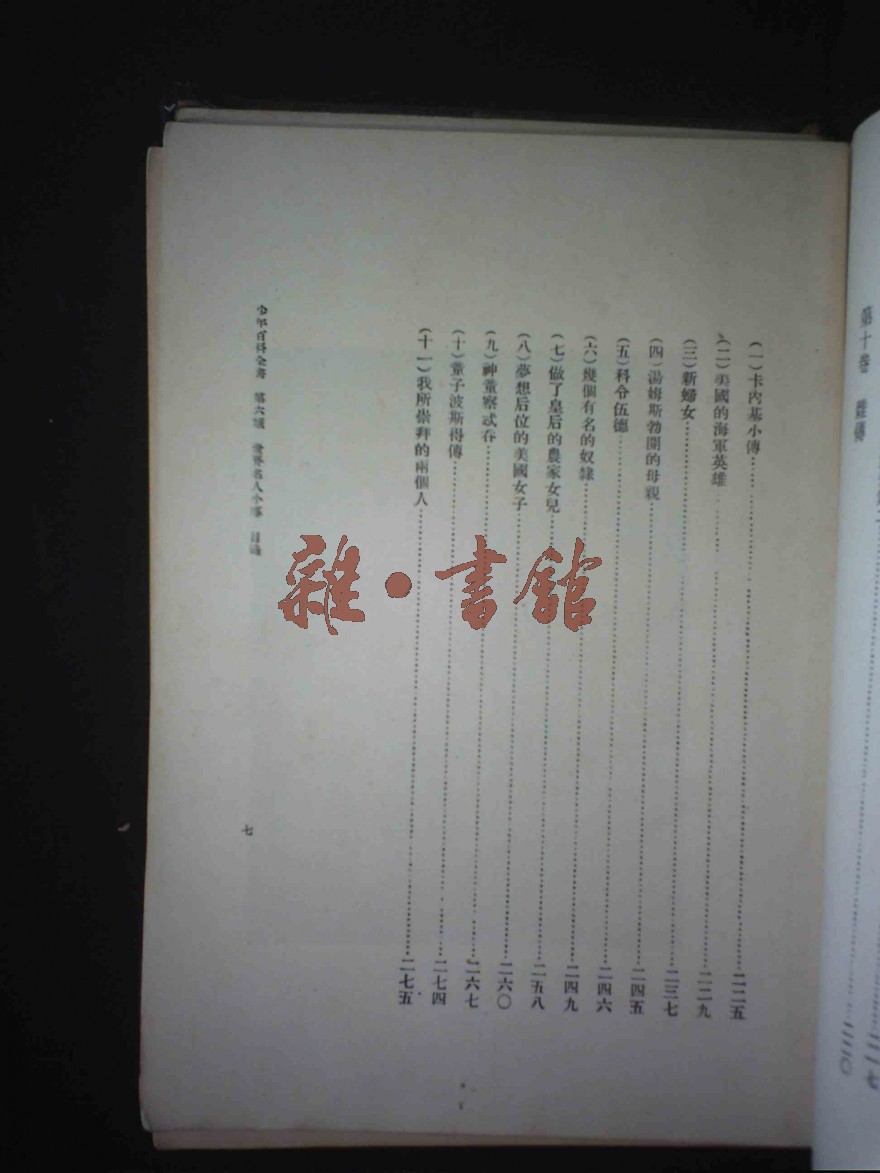 第十卷 雜傳
二二〇
(一)卡內基小傳……二二五
(二)美國的海軍英雄……二二九
(三)新婦女……二三七
(四)湯姆斯勃開的母親……二四五
(五)科令伍德……二四六
(六)幾個有名的奴隸……二四九
(七)做了皇后的農家女兒……二五八
(八)夢想后位的美國女子……二六〇
(九)神童察忒吞……二六七
(十)童子波斯得傳……二七四
(十一)我所崇拜的兩個人……二七五
少年百科全書 第六類 世界名人小傳 目錄
七
雜·書館